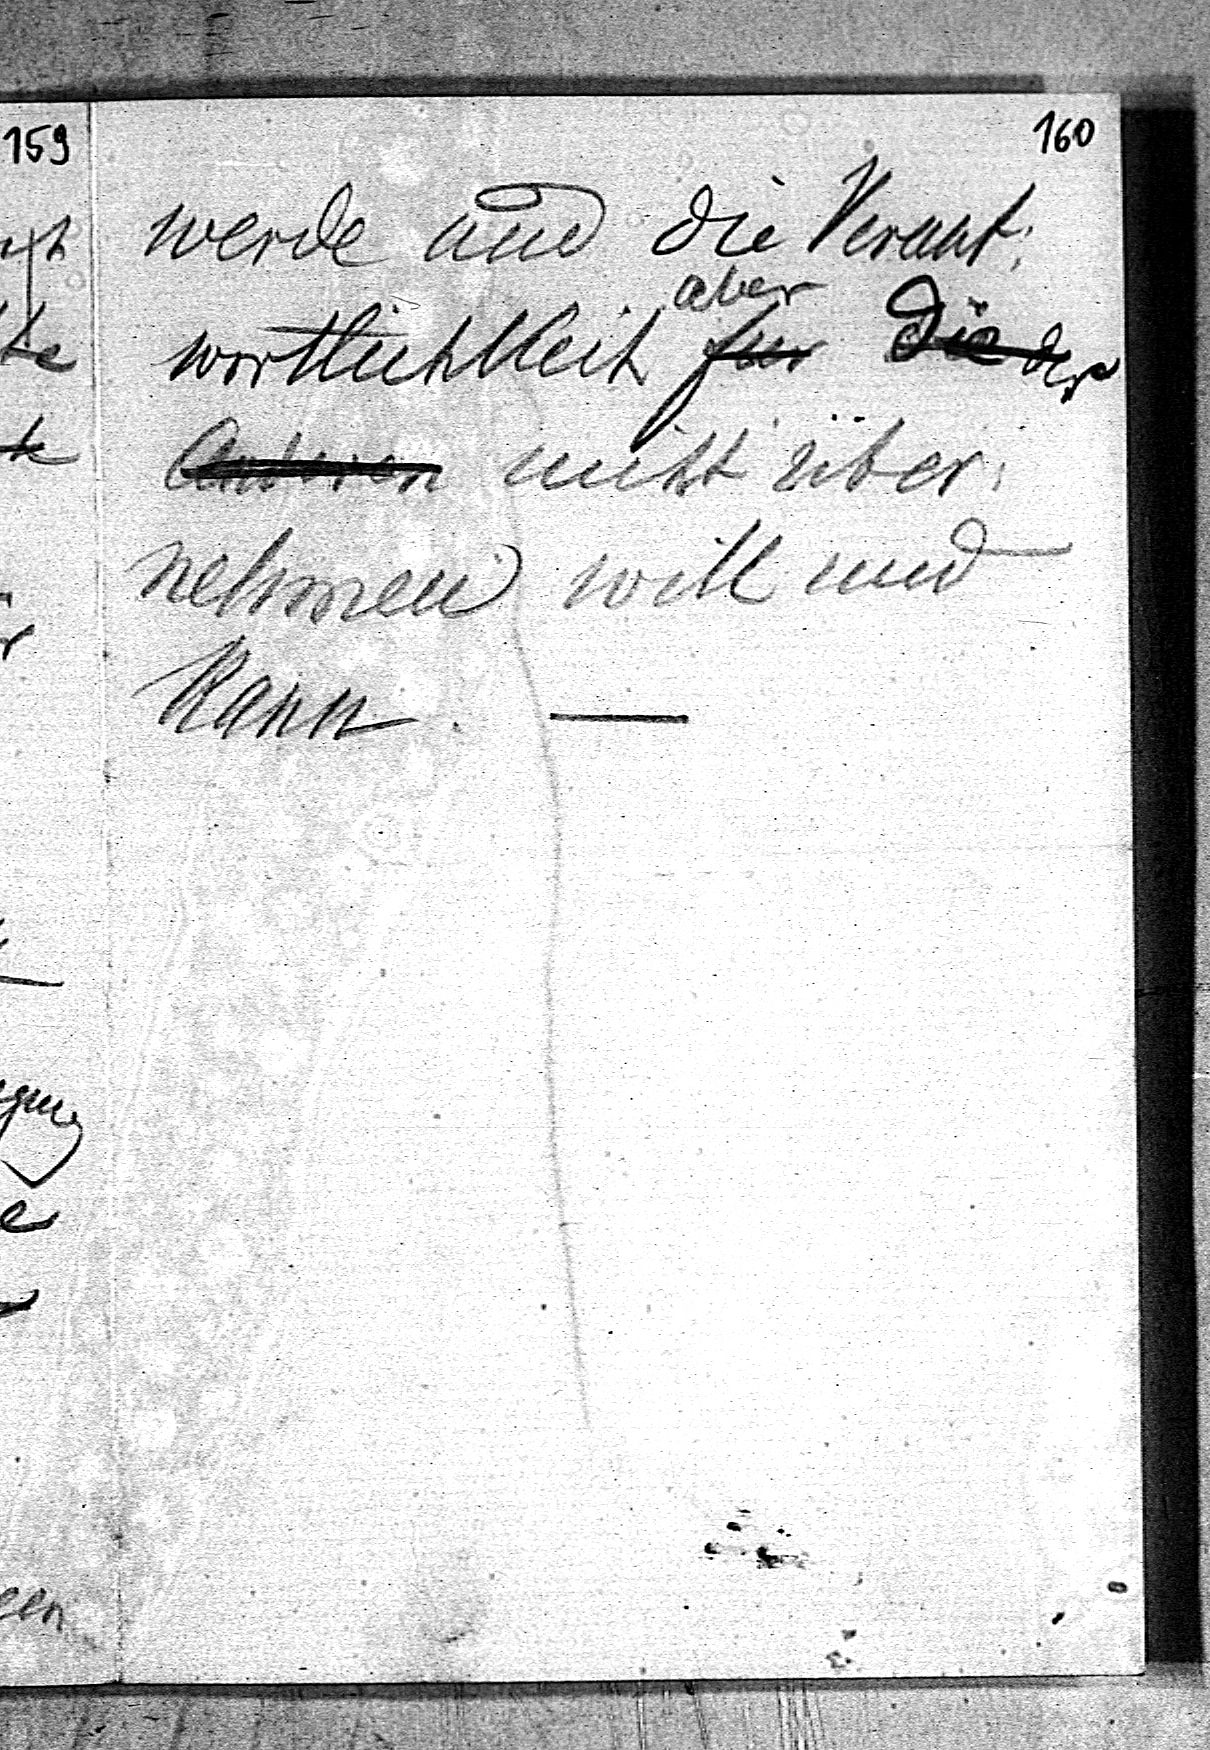 159
160
werde und die Verant:
aber
wortlichkeit für die der
Anderen nicht über:
nehmen will und
kann. —